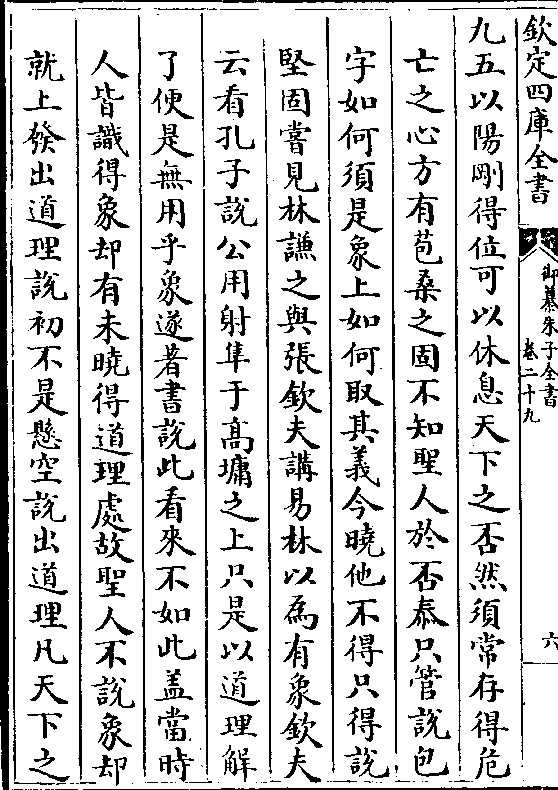 欽定四庫全書
御纂朱子全書
卷二十九
六
九五以陽剛得位可以休息天下之否然須常存得危
亡之心方有苞桑之固不知聖人於否泰只管說包
字如何須是象上如何取其義今曉他不得只得說
堅固嘗見林謙之與張欽夫講易林以為有象欽夫
云看孔子說公用射隼于髙墉之上只是以道理解
了便是無用乎象遂著書說此看來不如此盖當時
人皆識得象却有未曉得道理處故聖人不說象却
就上發出道理說初不是懸空說出道理凡天下之